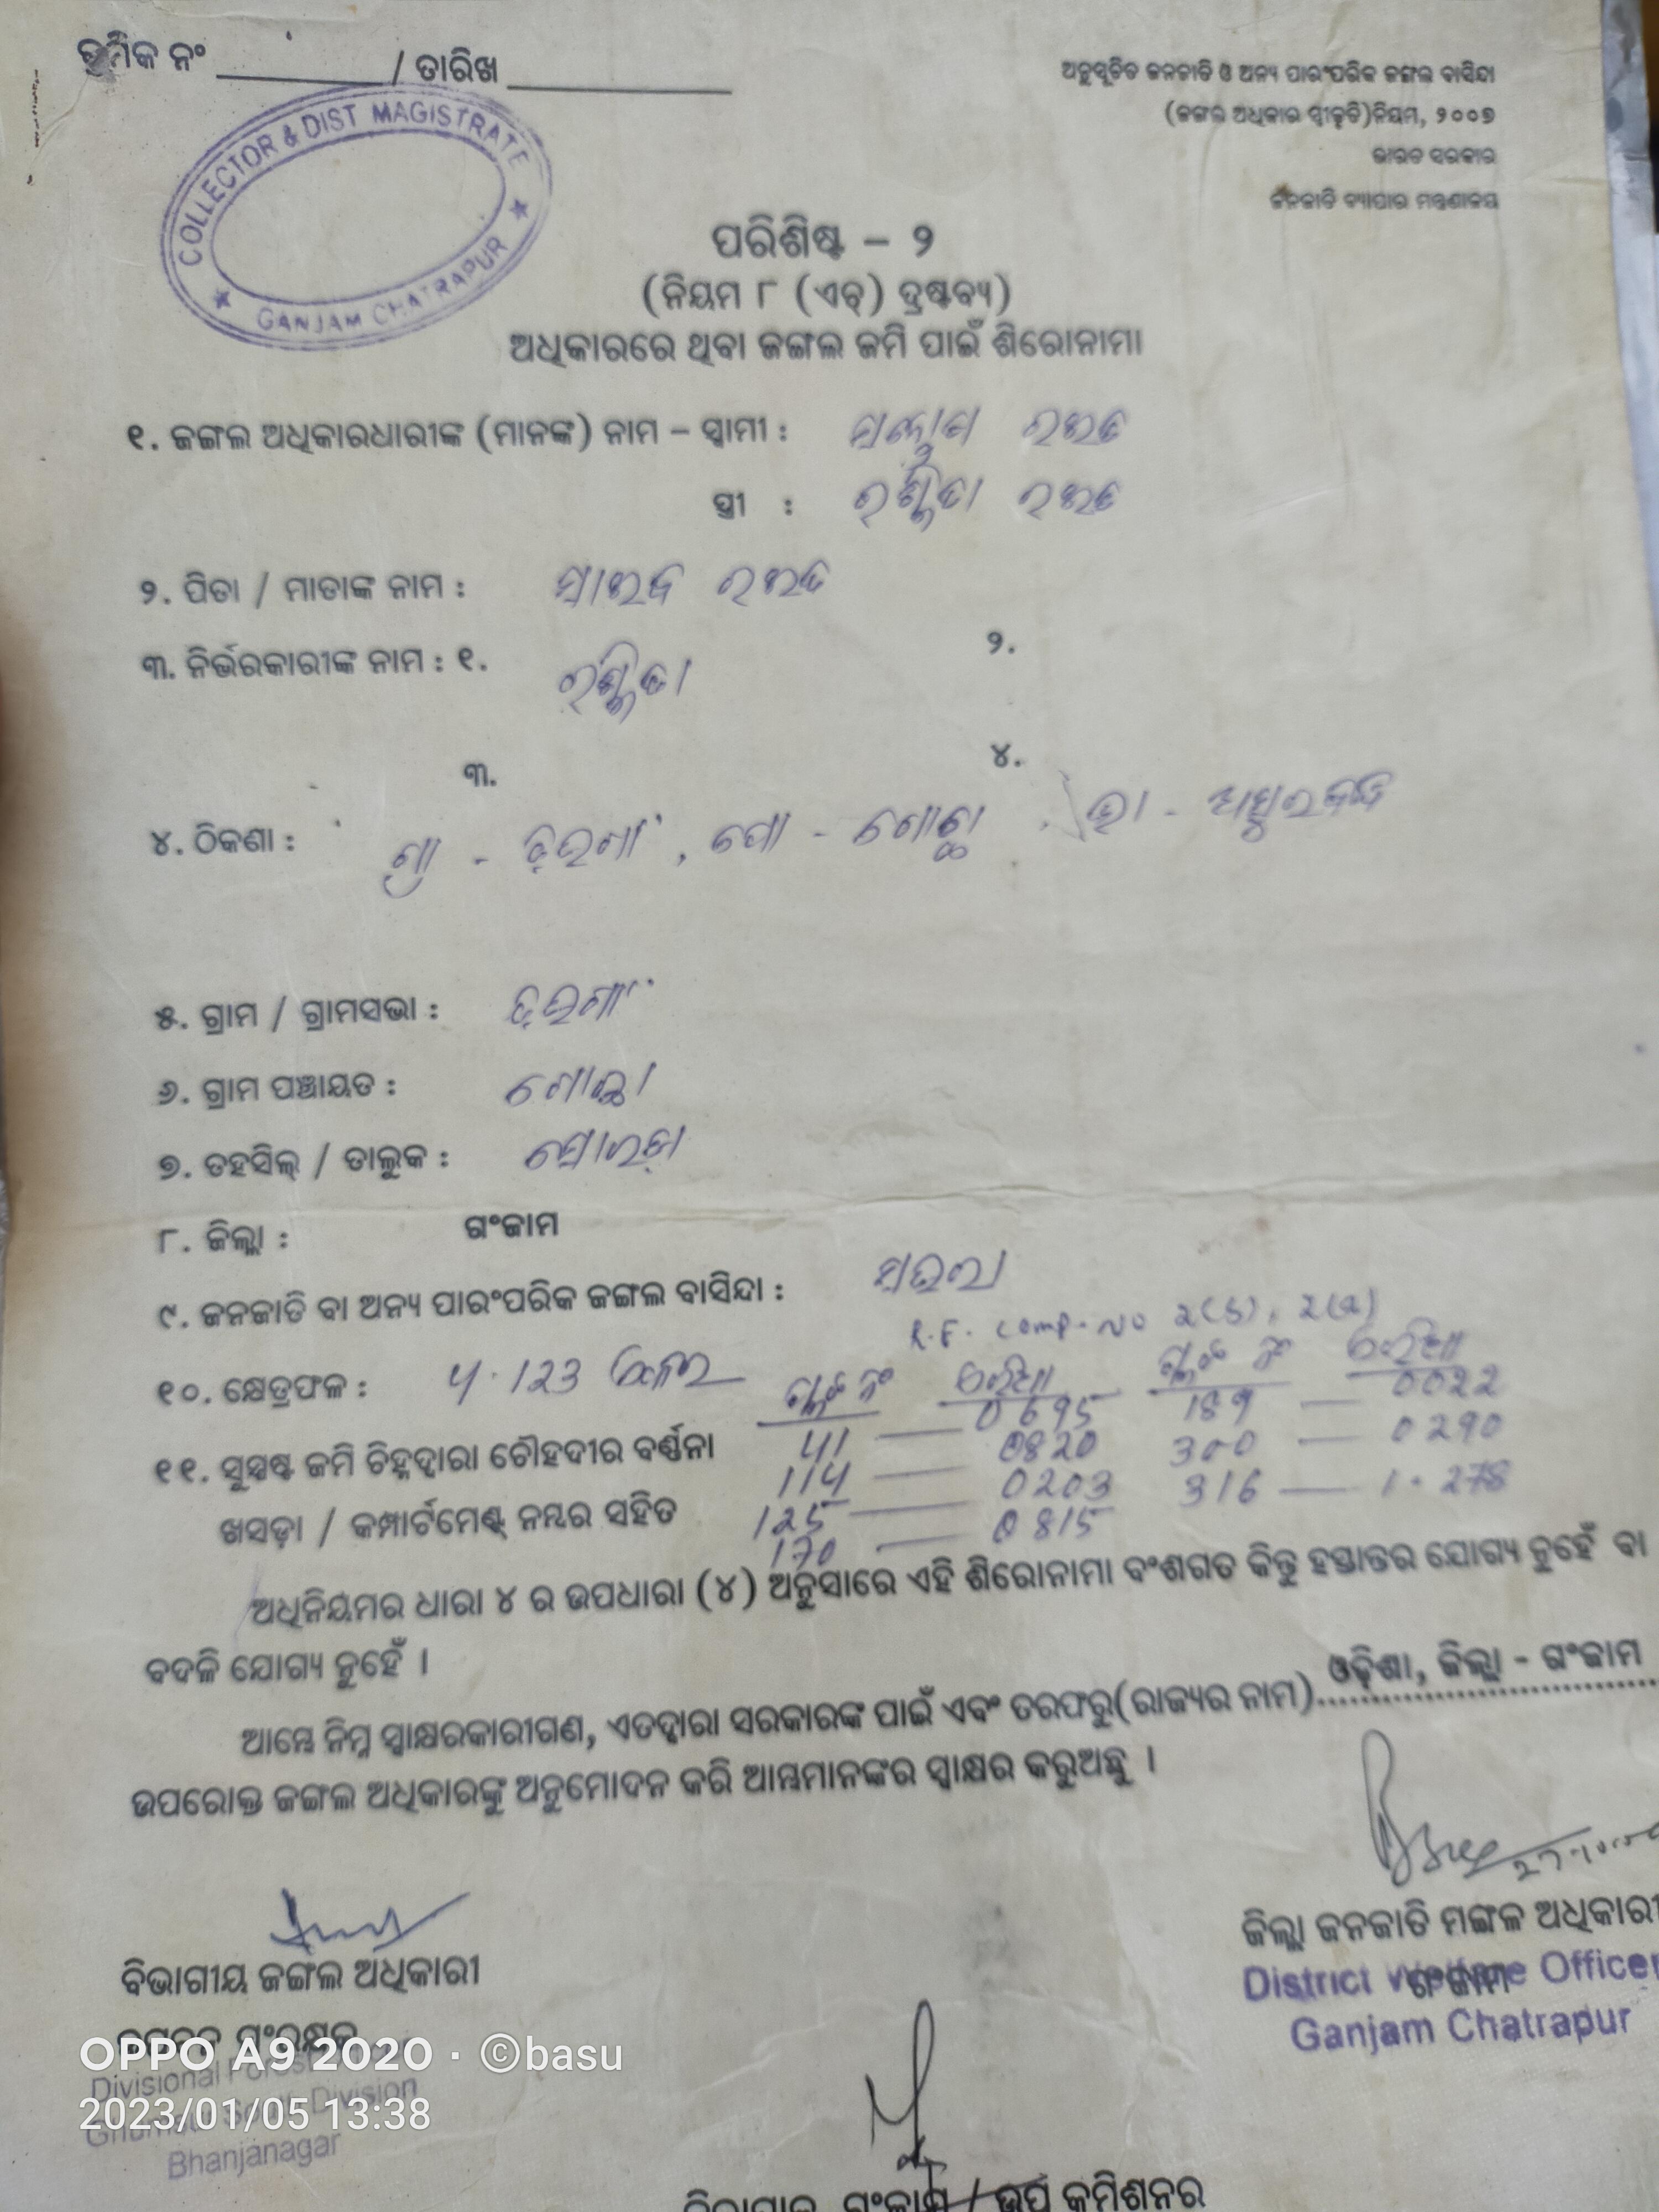 କ୍ରମିକ ନଂ / ତାରିଖ
ଅନୁସୂଚିତ ଜନଜାତି ଓ ଅନ୍ୟ ପାରଂପରିକ ଜଙ୍ଗଲ ବାସିନ୍ଦା
(ଜଙ୍ଗଲ ଅଧିକାର ସ୍ୱୀକୃତି)ନିୟମ, ୨୦୦୭
ଭାରତ ସରକାର
ଜନଜାତି ବ୍ୟାପାର ମନ୍ତ୍ରଣାଳୟ
COLLECTOR & DIST MAGISTRATE
GANJAM CHATRAPUR
ପରିଶିଷ୍ଟ – ୨
(ନିୟମ ୮ (ଏଚ୍) ଦ୍ରଷ୍ଟବ୍ୟ)
ଅଧିକାରରେ ଥିବା ଜଙ୍ଗଲ ଜମି ପାଇଁ ଶିରୋନାମା
୧. ଜଙ୍ଗଲ ଅଧିକାରଧାରୀଙ୍କ (ମାନଙ୍କ) ନାମ – ସ୍ୱାମୀ : ରଇତ
ସ୍ତ୍ରୀ : ରଇତ
୨. ପିତା / ମାତାଙ୍କ ନାମ : ରଇତ
୩. ନିର୍ଭରକାରୀଙ୍କ ନାମ : ୧. ୨.
୩. ୪.
୪. ଠିକଣା : ଗ୍ରା - , ପୋ - ଗୋଚ୍ଛା
୫. ଗ୍ରାମ / ଗ୍ରାମସଭା :
୬. ଗ୍ରାମ ପଞ୍ଚାୟତ : ଗୋଚ୍ଛା
୭. ତହସିଲ୍ / ତାଲୁକ : ସୋରଡ଼ା
୮. ଜିଲ୍ଲା : ଗଂଜାମ
୯. ଜନଜାତି ବା ଅନ୍ୟ ପାରଂପରିକ ଜଙ୍ଗଲ ବାସିନ୍ଦା : ସଉରା
R.F. Comp. No
୧୦. କ୍ଷେତ୍ରଫଳ : 4.123 ପ୍ଲଟ ନଂ ଏରିଆ ପ୍ଲଟ ନଂ ଏରିଆ
41 — 0695 189 — 0022
୧୧. ସୁସ୍ପଷ୍ଟ ଜମି ଚିହ୍ନଦ୍ୱାରା ଚୌହଦୀର ବର୍ଣ୍ଣନା 114 — 0820 300 — 0290
ଖସଡ଼ା / କମ୍ପାର୍ଟମେଣ୍ଟ୍ ନମ୍ବର ସହିତ 125 — 0203 316 — 1.278
170 — 0815
ଅଧିନିୟମର ଧାରା ୪ ର ଉପଧାରା (୪) ଅନୁସାରେ ଏହି ଶିରୋନାମା ବଂଶଗତ କିନ୍ତୁ ହସ୍ତାନ୍ତର ଯୋଗ୍ୟ ନୁହେଁ ବା
ବଦଳି ଯୋଗ୍ୟ ନୁହେଁ ।
ଆମ୍ଭେ ନିମ୍ନ ସ୍ୱାକ୍ଷରକାରୀଗଣ, ଏତଦ୍ୱାରା ସରକାରଙ୍କ ପାଇଁ ଏବଂ ତରଫରୁ(ରାଜ୍ୟର ନାମ) ଓଡ଼ିଶା, ଜିଲ୍ଲା - ଗଂଜାମ
ଉପରୋକ୍ତ ଜଙ୍ଗଲ ଅଧିକାରଙ୍କୁ ଅନୁମୋଦନ କରି ଆମ୍ଭମାନଙ୍କର ସ୍ୱାକ୍ଷର କରୁଅଛୁ ।
ଜିଲ୍ଲା ଜନଜାତି ମଙ୍ଗଳ ଅଧିକାରୀ
ଗଂଜାମ
District Welfare Officer
Ganjam Chatrapur
ବିଭାଗୀୟ ଜଙ୍ଗଲ ଅଧିକାରୀ
ସଂରକ୍ଷକ
Divisional Forest
South Division
Bhanjanagar
OPPO A9 2020 · ©basu
2023/01/05 13:38
ଜିଲ୍ଲାପାଳ, ଗଂଜାମ / ଉପ କମିଶନର